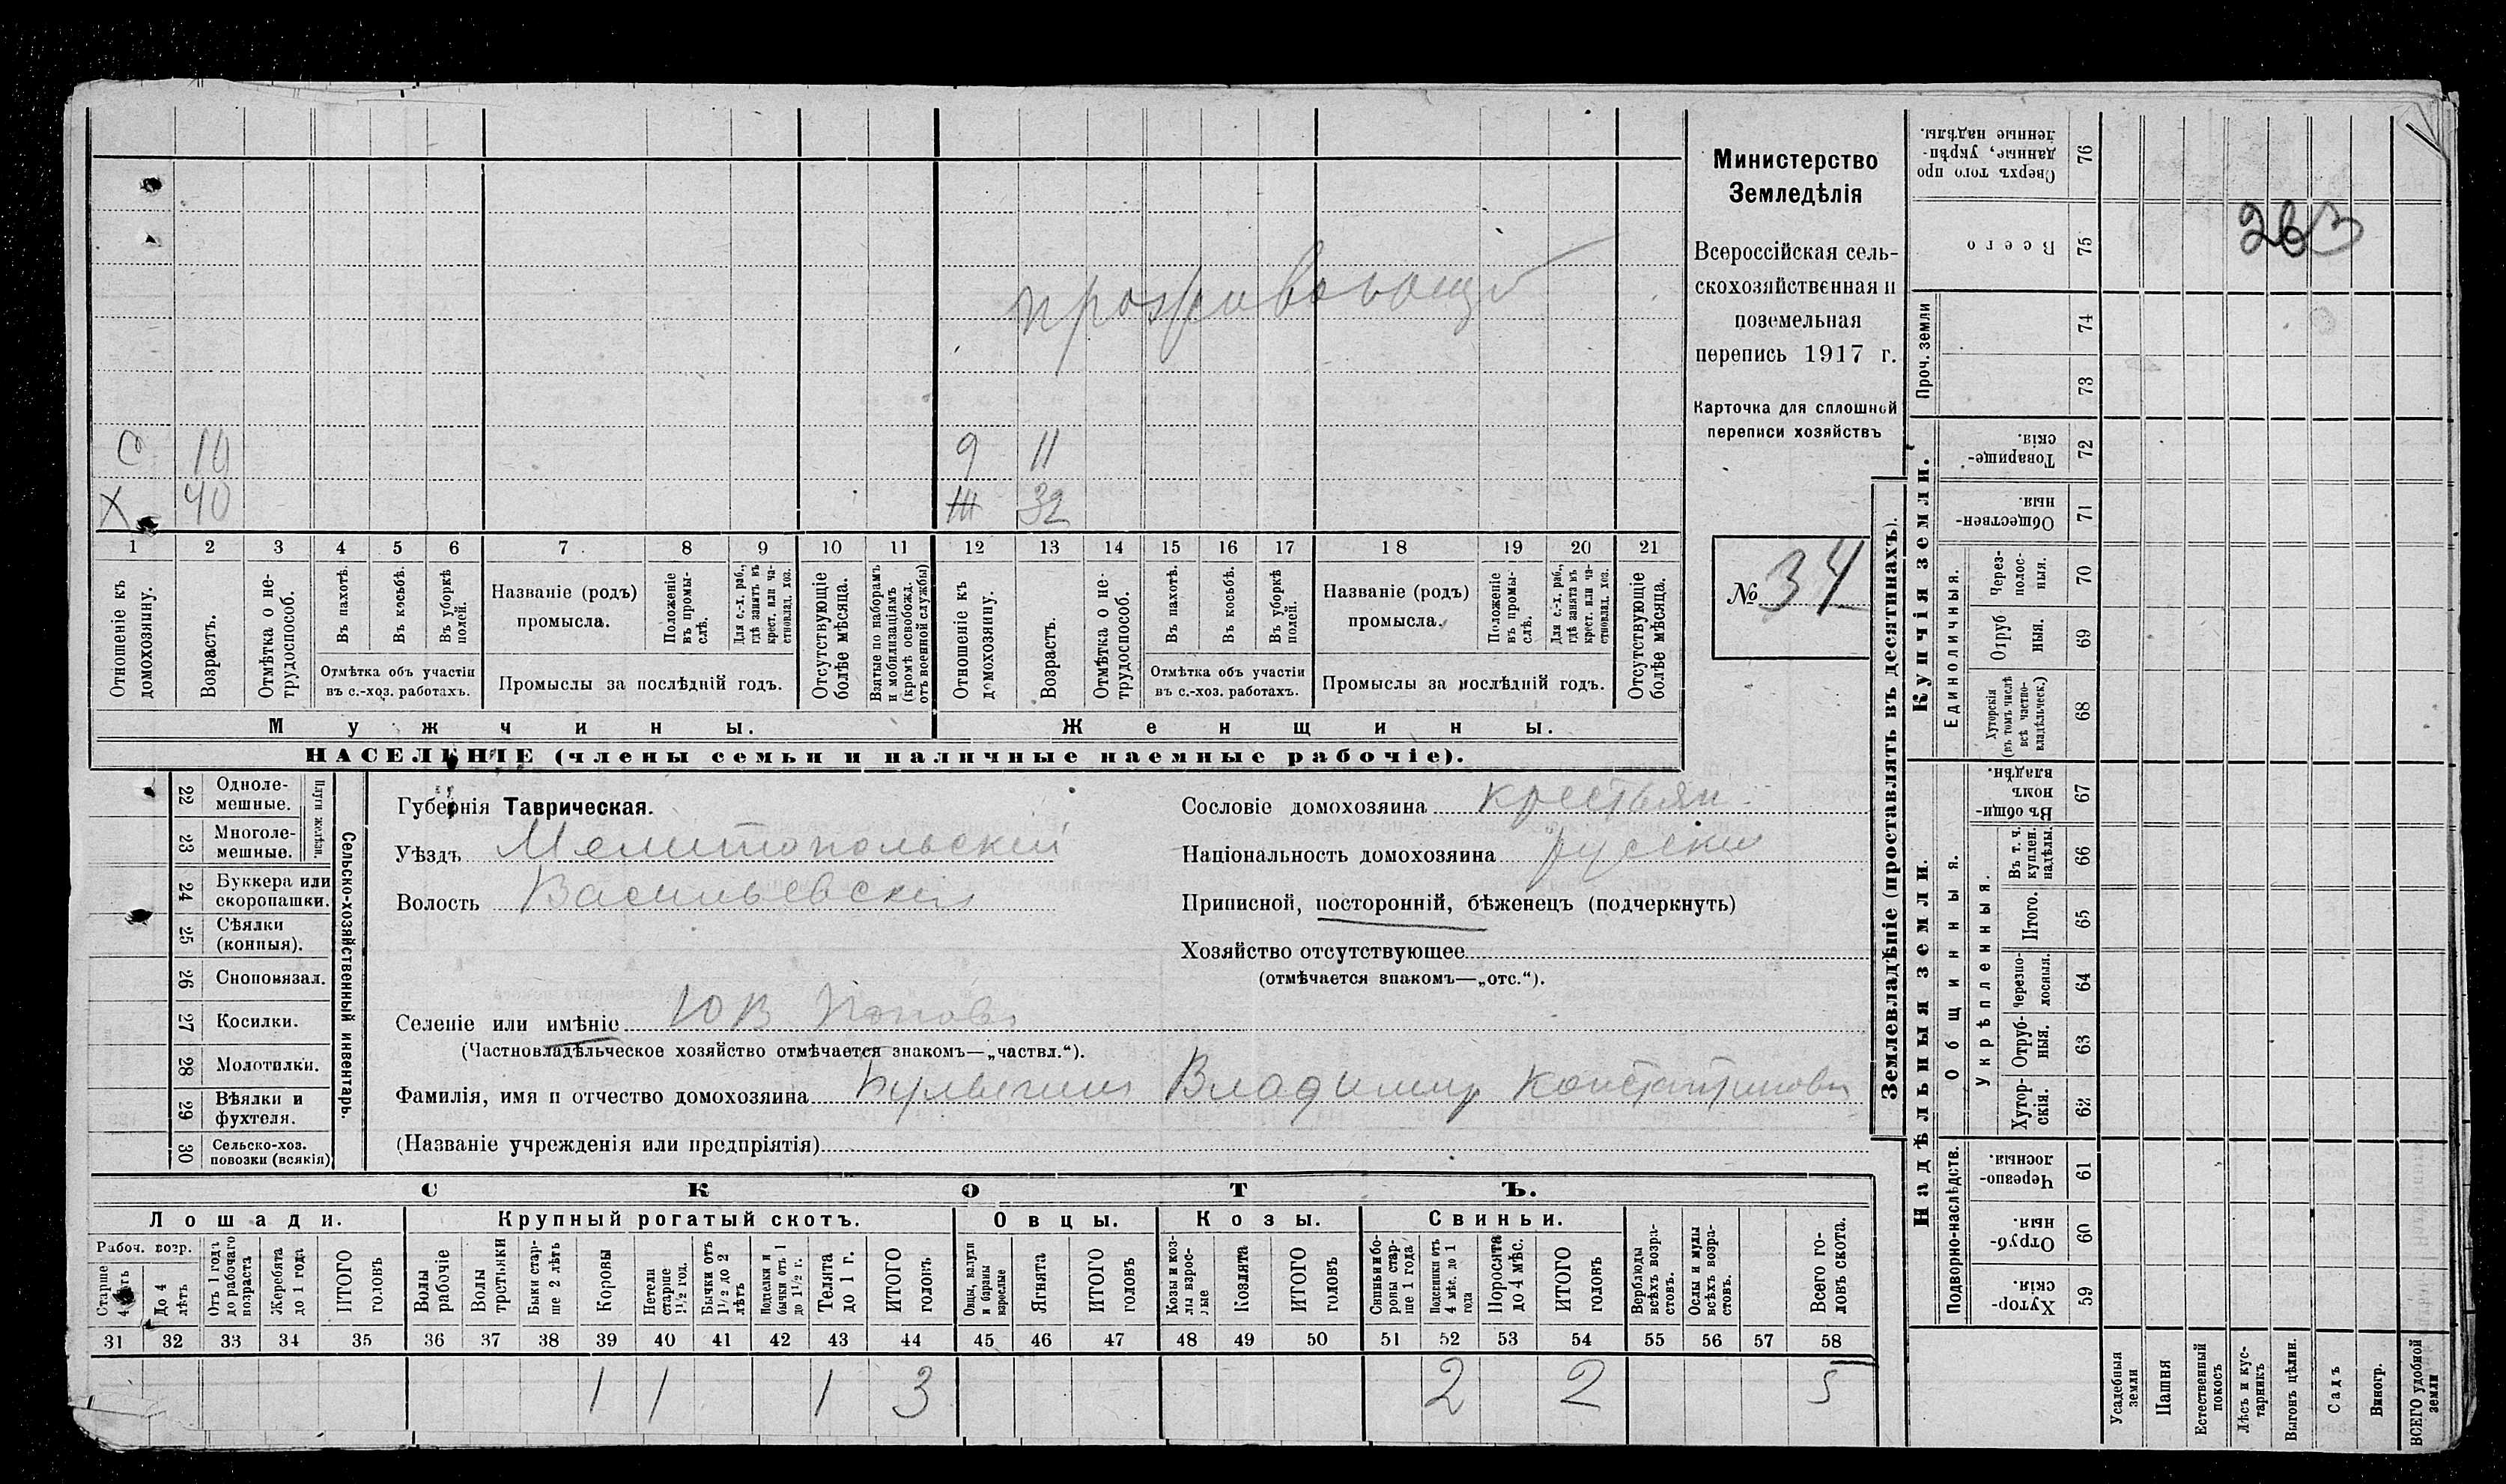 проживающ
С 10 9 11
Х 40 Ж 32
1 2 3 4 5 6 7 8 9 10 11 12 13 14 15 16 17 18 19 20 21
Отношеніе къ домохозяину.
Возрастъ.
Отмѣтка о не-трудоспособ.
Въ пахотѣ.
Въ косьбѣ.
Въ уборкѣ полей.
Отмѣтка объ участіи
въ с.-хоз. работахъ.
Названіе (родъ)
промысла.
Положеніе въ промы-слѣ.
Для с.-х. раб., гдѣ занятъ въ крест. или ча-стновлад. хоз.
Промыслы за послѣдній годъ.
Отсутствующіе болѣе мѣсяца.
Взятые по наборамъ и мобилизаціямъ (кромѣ освобожд. отъ военной службы)
Отношеніе къ домохозяину.
Возрастъ.
Отмѣтка о не-трудоспособ.
Въ пахотѣ.
Въ косьбѣ.
Въ уборкѣ полей.
Отмѣтка объ участіи
въ с.-хоз. работахъ.
Названіе (родъ)
промысла.
Положеніе въ промы-слѣ.
Для с.-х. раб., гдѣ занята въ крест. или ча-стновлад. хоз.
Промыслы за послѣдній годъ.
Отсутствующіе болѣе мѣсяца.
Мужчины. Женщины.
НАСЕЛЕНІЕ (члены семьи и наличные наемные рабочіе).
Министерство
Земледѣлія
Всероссійская сель-
скохозяйственная и
поземельная
перепись 1917 г.
Карточка для сплошной
переписи хозяйствъ
№ 34
22 Одноле-мешные.
23 Многоле-мешные.
Плуги желѣзн.
24 Буккера или скоропашки.
25 Сѣялки (конныя).
26 Сноповязал.
27 Косилки.
28 Молотилки.
29 Вѣялки и фухтеля.
30 Сельско-хоз. повозки (всякія)
Сельско-хозяйственный инвентарь.
Губернія Таврическая.
Уѣздъ Мелитопольскій
Волость Васильевская
Сословіе домохозяина крестьян.
Національность домохозяина русскій
Приписной, посторонній, бѣженецъ (подчеркнуть)
Хозяйство отсутствующее
(отмѣчается знакомъ—„отс.“).
Селеніе или имѣніе Ю В Попова
(Частновладѣльческое хозяйство отмѣчается знакомъ—„частвл.“).
Фамилія, имя и отчество домохозяина Владимир Константинович
(Названіе учрежденія или предпріятія)
СКОТЪ.
Лошади. Крупный рогатый скотъ. Овцы. Козы. Свиньи.
Рабоч. возр.
Старше 4 лѣтъ
До 4 лѣтъ
Отъ 1 года до рабочаго возраста
Жеребята до 1 года
ИТОГО головъ
Волы рабочіе
Волы третьяки
Быки стар-ше 2 лѣтъ
Коровы
Нетели старше 1½ год.
Бычки отъ 1½ до 2 лѣтъ
Подтелки и бычки отъ 1 до 1½ г.
Телята до 1 г.
ИТОГО головъ
Овцы, валухи и бараны взрослые
Ягнята
ИТОГО головъ
Козы и коз-лы взрос-лые
Козлята
ИТОГО головъ
Свиньи и бо-ровы стар-ше 1 года
Подсвинки отъ 4 мѣс. до 1 года
Поросята до 4 мѣс.
ИТОГО головъ
Верблюды всѣхъ возра-стовъ.
Ослы и мулы всѣхъ возра-стовъ.
Всего го-ловъ скота.
31 32 33 34 35 36 37 38 39 40 41 42 43 44 45 46 47 48 49 50 51 52 53 54 55 56 57 58
1 1 1 3 2 2 5
Землевладѣніе (проставлять въ десятинахъ).
Купчія земли.
Надѣльныя земли.
Сверхъ того про-данные, укрѣп-ленные надѣлы. 76
Всего 75
263
Проч. земли
74
73
Товарище-скія. 72
Обществен-ныя. 71
Единоличныя.
Через-полос-ныя. 70
Отруб-ныя. 69
Хуторскія (въ томъ числѣ всѣ частно-владѣльческ.) 68
Въ общи-номъ владѣн. 67
Общинныя.
Укрѣпленныя.
Въ т. ч. куплен. надѣлы. 66
Итого. 65
Черезпо-лосныя. 64
Отруб-ныя. 63
Хутор-скія. 62
Подворно-наслѣдств.
Черезпо-лосныя. 61
Отруб-ныя. 60
Хутор-скія. 59
Усадебныя земли
Пашня
Естественный покосъ
Лѣсъ и кус-тарникъ
Выгонъ цѣлин.
Садъ
Виногр.
ВСЕГО удобной земли